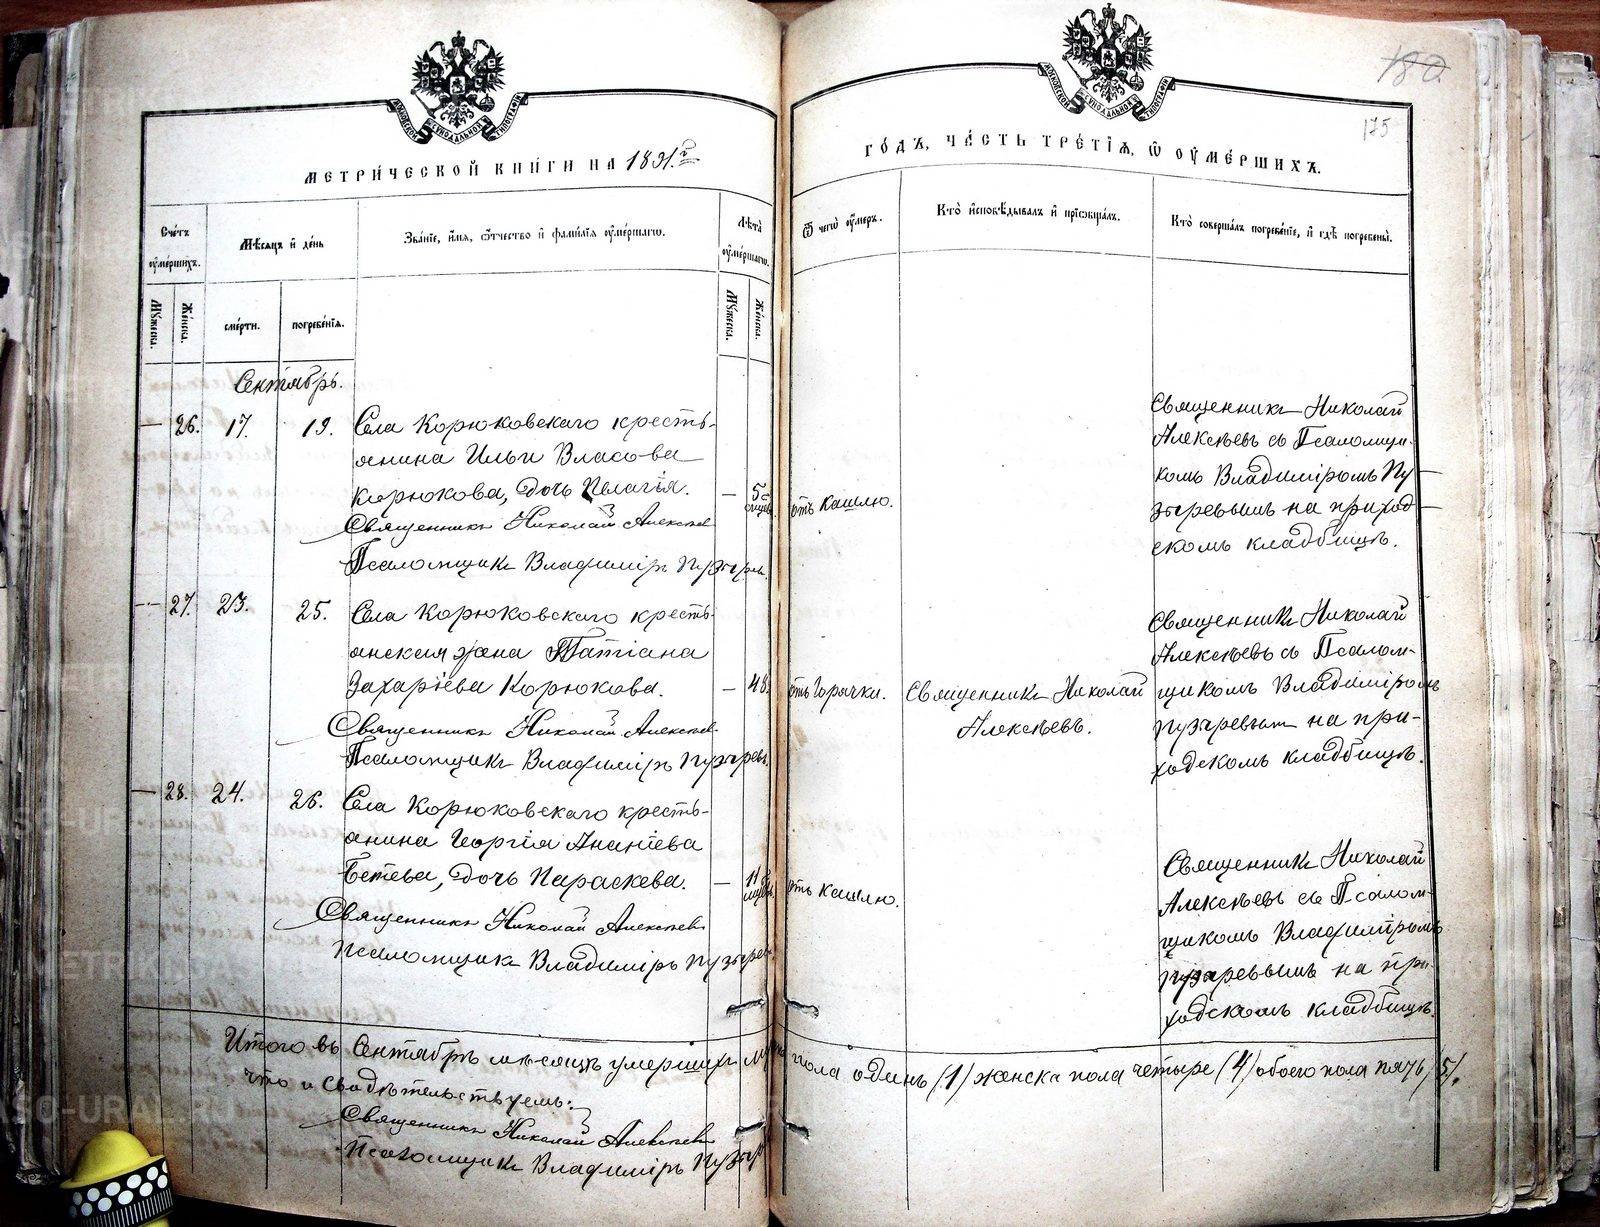 МЕТРИЧЕСКОЙ КНИГИ НА 1891 г.
Счетъ оумершихъ.
Мужеска.
Женска.
Мѣсяцъ и день
смерти.
погребенія.
Званіе, имя, отчество и фамилія оумершагѡ.
Лѣта оумершагѡ.
Мужеска.
Женска.
Сентябрь.
— 26. 17. 19. Села Корюковскаго кресть-
янина Ильи Власова
Корюкова, дочь Пелагія. — 5
Священникъ Николай Алексѣев
Псаломщикъ Владиміръ Пузырев.
— 27. 23. 25. Села Корюковскаго кресть-
янская жена Татіана
Захаріева Корюкова. — 48.
Священникъ Николай Алексѣев
Псаломщикъ Владиміръ Пузырев.
— 28. 24. 26. Села Корюковскаго кресть-
янина Георгія Ананіева
Бетева, дочь Параскева. — 11
Священникъ Николай Алексѣев
Псаломщикъ Владиміръ Пузырев
Итого въ Сентябрѣ мѣсяцѣ умершихъ муж. пола одинъ (1) женска пола четыре (4) обоего пола пять (5).
что и свидѣтельствуемъ:
Священникъ Николай Алексѣев
Псаломщикъ Владиміръ Пузыр
180
175
ГОДЪ, ЧАСТЬ ТРЕТІЯ, Ѡ ОУМЕРШИХЪ.
Ѿ чегѡ оумеръ.
Кто исповѣдывалъ и пріобщалъ.
Кто совершалъ погребеніе, и гдѣ погребены.
отъ кашлю.
Священникъ Николай
Алексѣевъ съ Псаломщи-
комъ Владиміромъ Пу-
зыревымъ на приход-
скомъ кладбищѣ.
отъ горячки.
Священникъ Николай
Алексѣевъ.
Священникъ Николай
Алексѣевъ съ Псалом-
щикомъ Владиміромъ
Пузыревымъ на при-
ходскомъ кладбищѣ.
отъ кашлю.
Священникъ Николай
Алексѣевъ съ Псалом-
щикомъ Владиміромъ
Пузыревымъ на при-
ходскомъ кладбищѣ.